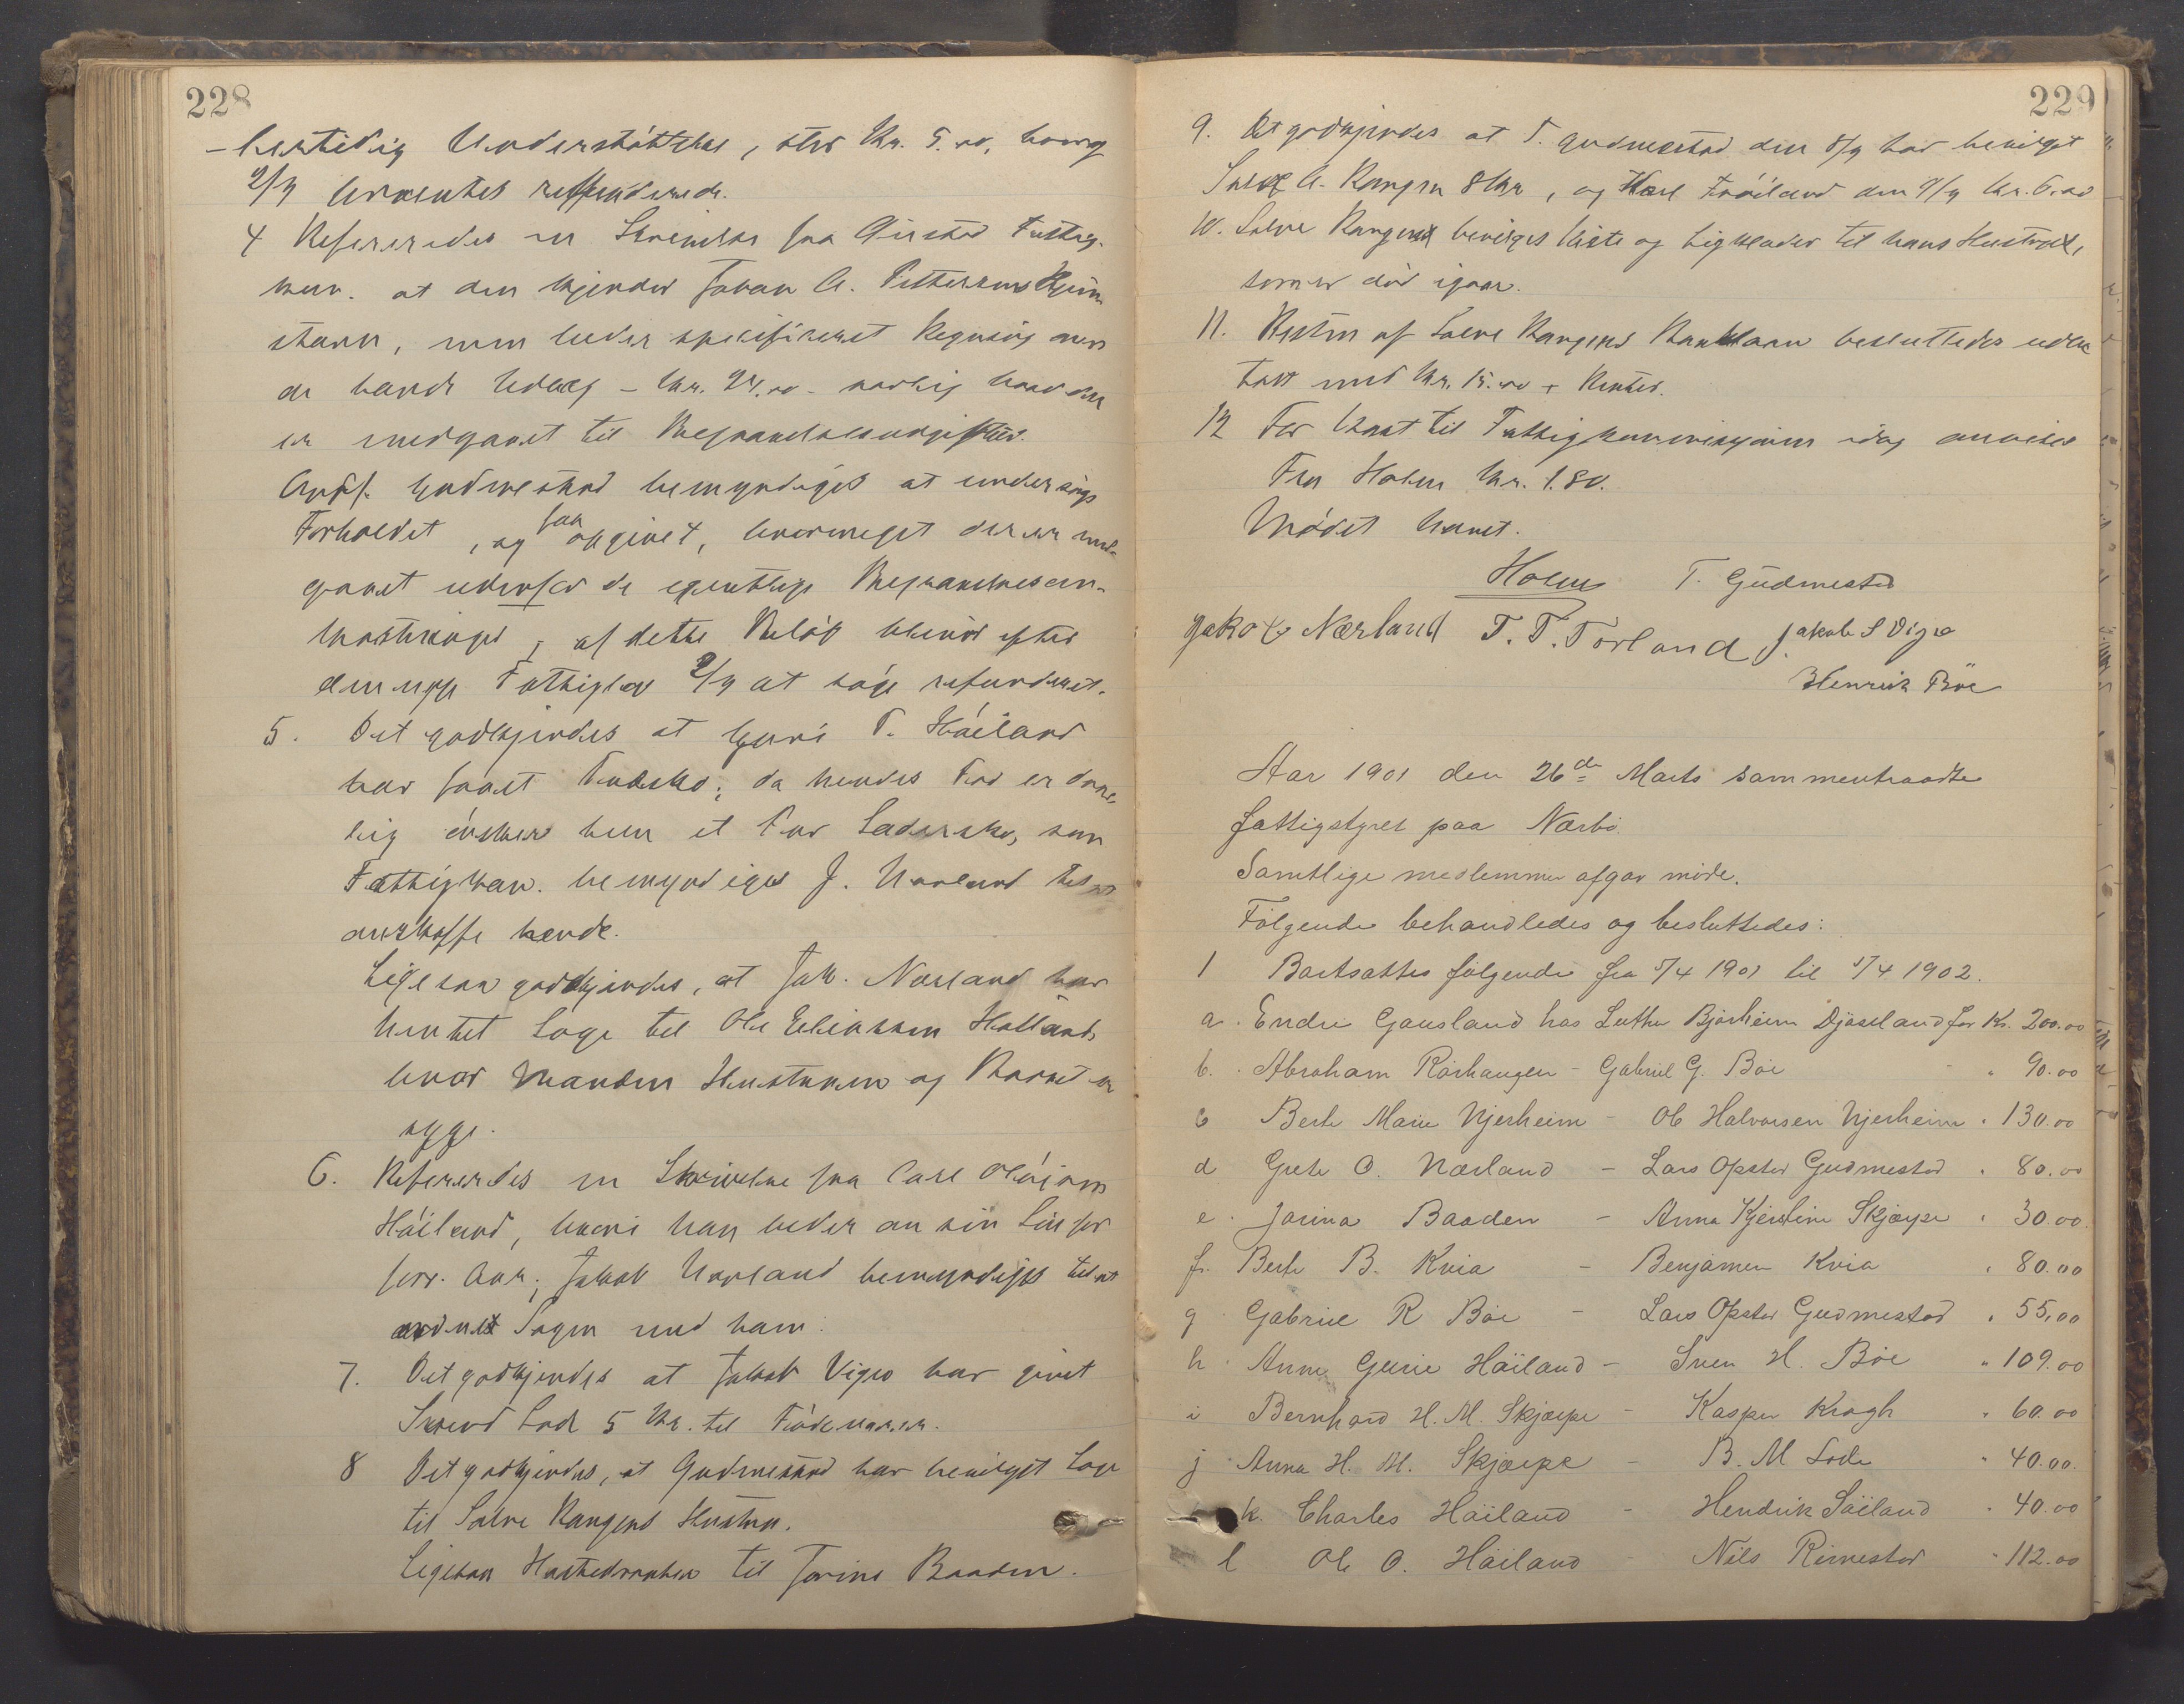 228
- bertidig Understøttelse, stor Kr. 5.00, hvoraf
2/4 ventes refunderede.
4 Refereredes en Skrivelse fra Giested Fattig-
kom. at den kjender Johan A. Pettersens Hjem
stavn, men beder specificeret Regning over
de havde Udlæg - Kr. 24.00 - særlig hvad der
er medgaaet til Begravelsesudgifter.
Ordf. Gudmestad bemyndiges at undersøge
Forholdet, og faa opgivet, hvormeget der er med-
gaaet udenfor de egentlige Begravelsesom-
kostninger, af dette Beløb bliver efter
Fattiglov 2/4 at søge refunderet.
5. Det godkjendes at Guri T. Høiland
har faaet Træsko; da hendes Fod er daar-
lig ønsker hun et Par Lædersko, som
Fattigkom. bemyndiges J. Nærland til at
anskaffe hende.
Ligesaa godkjendes, at Jak. Nærland har
hentet Læge til Ole Eliassen Høiland,
hvor Manden Hustruen og Barnet er
syge.
6. Refereredes en Skrivelse fra Carl Olai
Høiland, hvori han beder om sin Løn for
forr. Aar; Jakob Nærland bemyndiges til at
ordne Sagen med ham.
7. Det godkjendes at Jakob Vigre har givet
Svend Lode 5 Kr. til Fødevarer.
8 Det godkjendes, at Gudmestad har bevilget Læge
til Salve Rangens Hustru.
Ligesaa Hostedraaber til Jorine Baaden.
229
9. Det godkjendes at T. Gudmestad den 8/4 har bevilget
Salve A. Rangen 8 Kr, og Karl Frøiland den 9/4 Kr. 6.00
10. Salve Rangen bevilges Kiste og Ligklæder til hans Hustru,
som er død igaar.
11. Resten af Salve Rangens Banklaan besluttedes udbe
talt med Kr. 15.00 + Renter.
12 For Kost til Fattigkommissionen idag anvises
Fru Holm Kr. 1.80.
Mødet hævet.
Holm T. Gudmestad
Jakob Nærland T. T. Torland Jakob S Vigre
Henrik Böe
Aar 1901 den 26de Marts sammentraadte
fattigstyret paa Nærbö.
Samtlige medlemmer afgav möde.
Fölgende behandledes og besluttedes:
1 Bortsattes fölgende fra 1/4 1901 til 1/4 1902.
a. Endre Gausland hos Luther Bjørheim Djøseland for Kr. 200.00
b. Abraham Rörhaugen - Gabriel G. Böe - " 90.00
c Berte Marie Njerheim - Ole Halvorsen Njerheim " 130.00
d Grete O. Nærland - Lars Opstad Gudmestad " 80.00
e. Jorina Baaden - Anna Kjerstine Skjærpe " 30.00
f. Berte B. Kvia - Benjamen Kvia " 80.00
g Gabriel R Böe - Lars Opstad Gudmestad " 55,00
h Anne Gurie Höiland - Sven H. Böe " 109.00
i Bernhard H. M. Skjærpe - Kasper Kragh " 60.00
j Anna H. M. Skjærpe - B. M Lode " 40.00
k. Charles Höiland - Hendrik Söiland " 40.00
l Ole O. Höiland - Nils Rimestad " 112.00